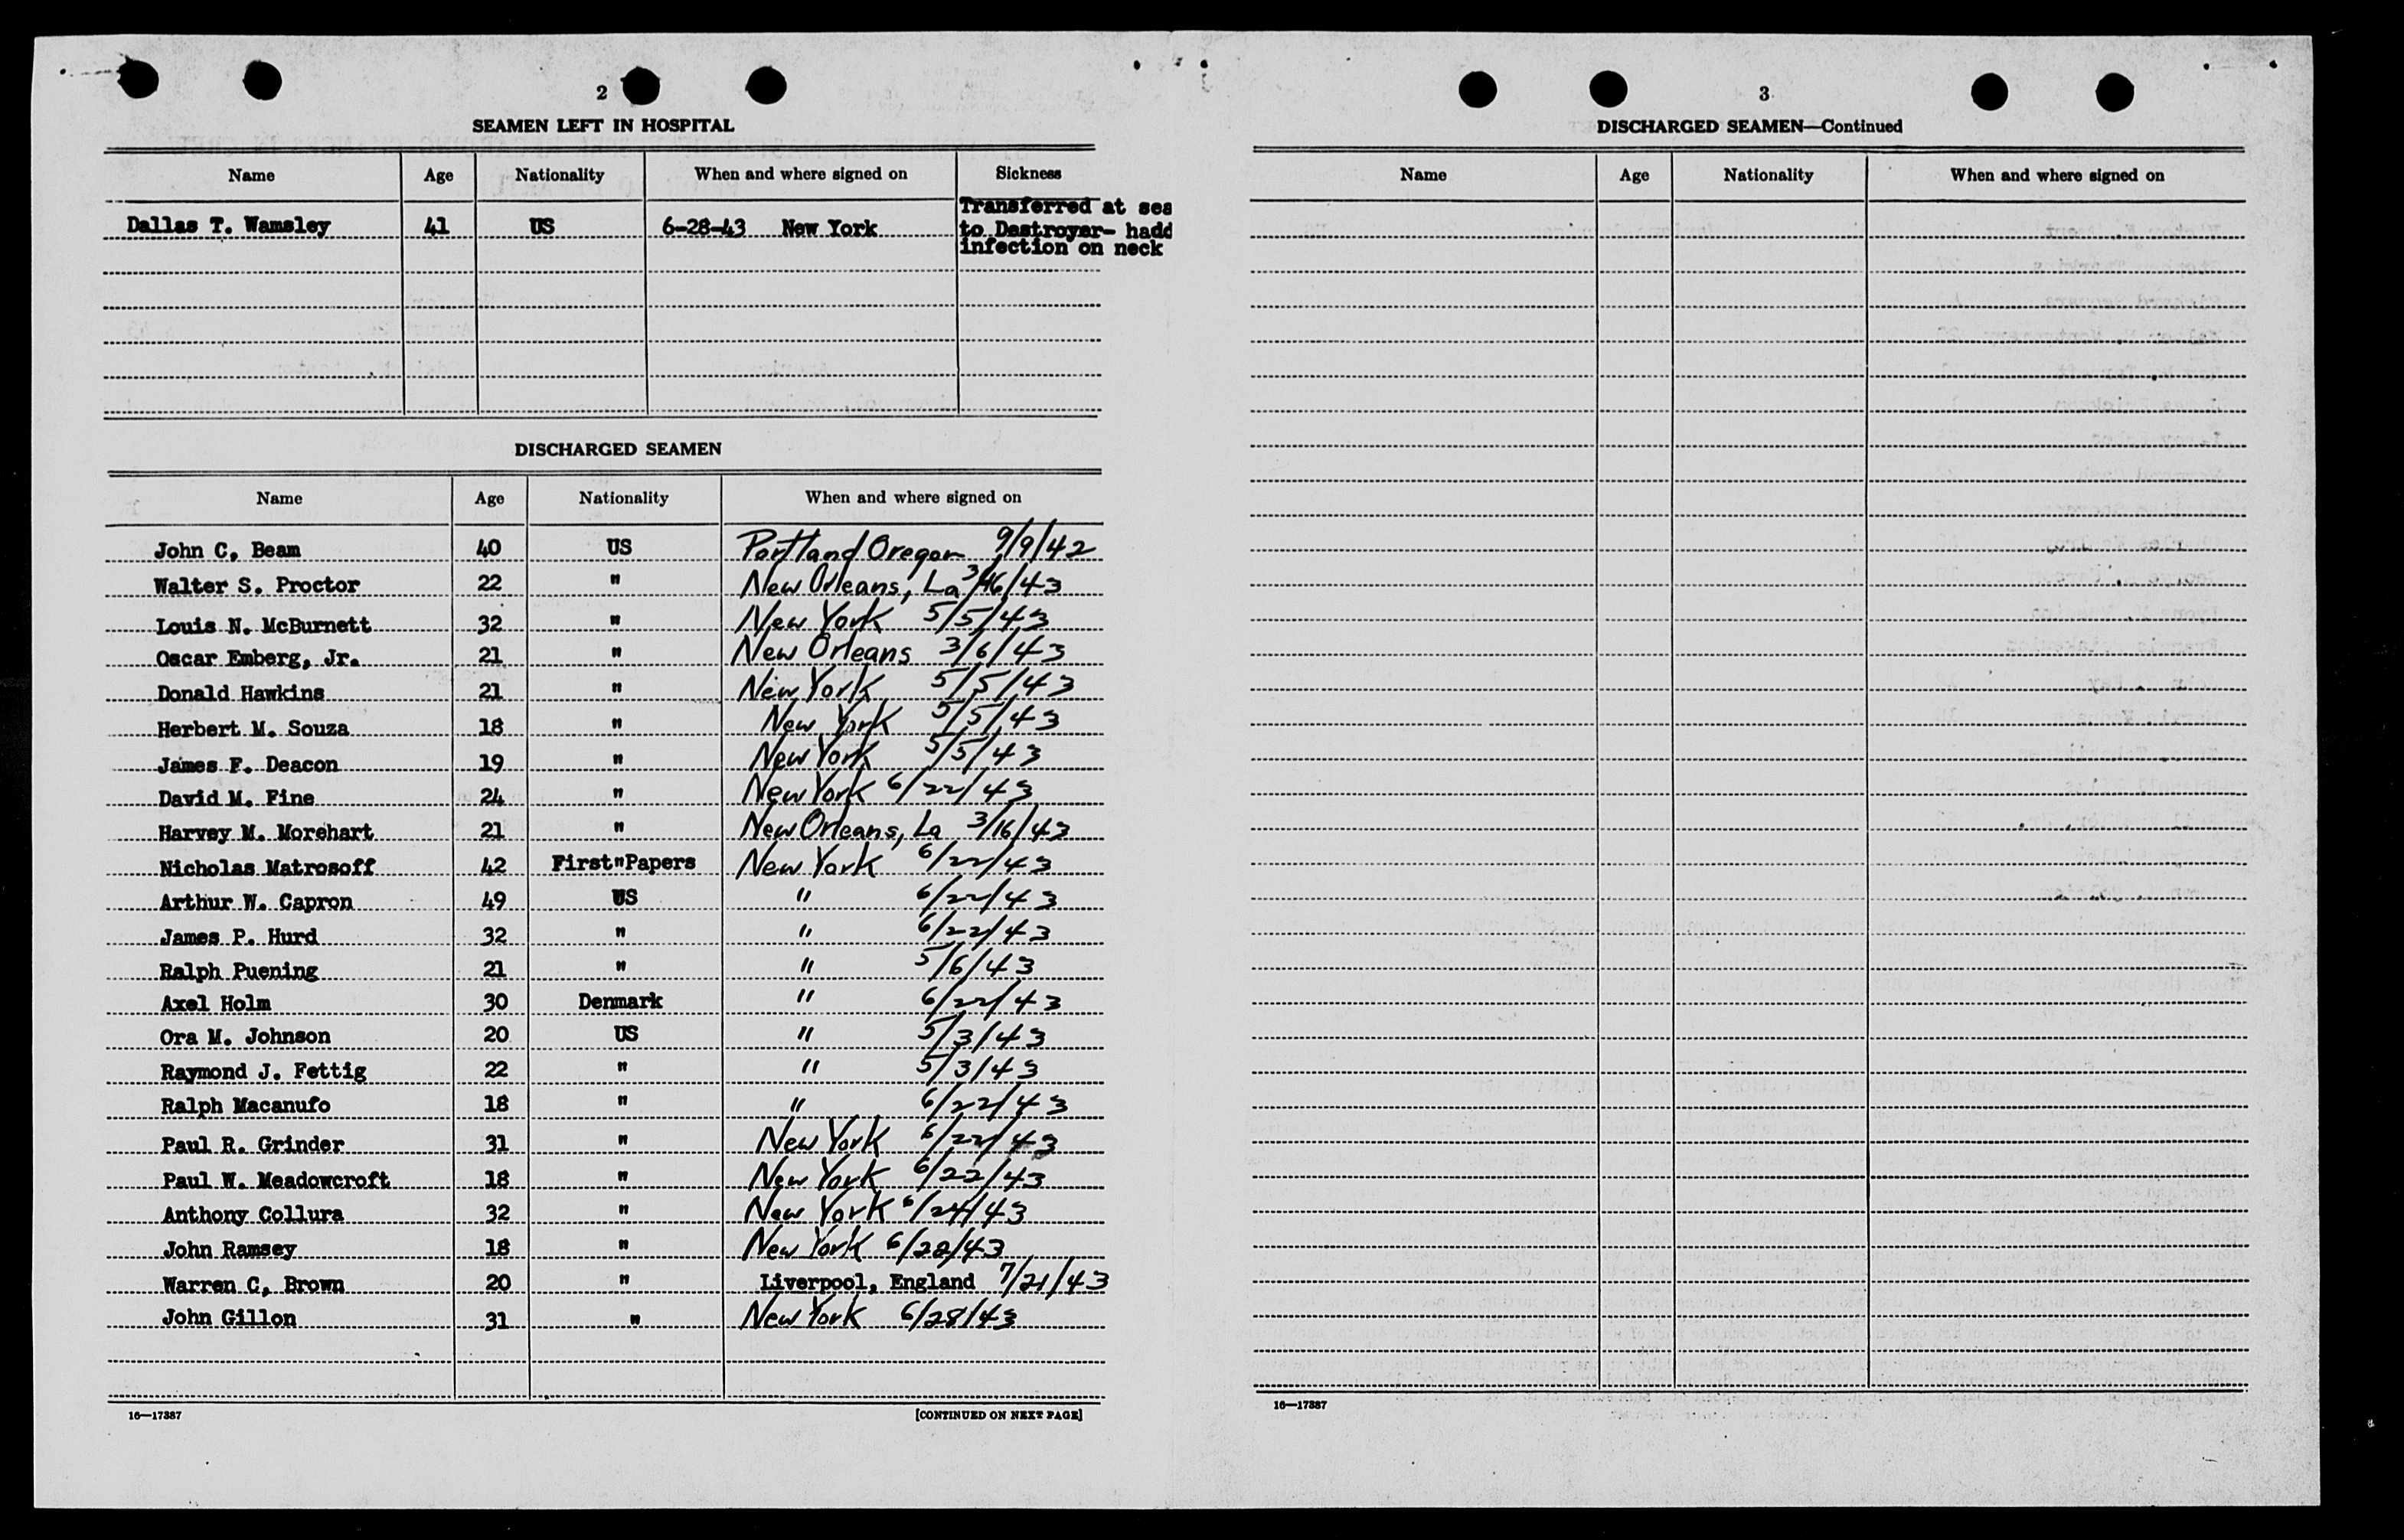 2
SEAMEN LEFT IN HOSPITAL
Name Age Nationality When and where signed on Sickness
Dallas T. Wamsley 41 US 6-28-43 New York Transferred at sea
to Destroyer- hadd
infection on neck
DISCHARGED SEAMEN
Name Age Nationality When and where signed on
John C, Beam 40 US Portland Oregon 9/9/42
Walter S. Proctor 22 " New Orleans, La 3/16/43
Louis N. McBurnett 32 " New York 5/5/43
Oscar Emberg, Jr. 21 " New Orleans 3/6/43
Donald Hawkins 21 " New York 5/5/43
Herbert M. Souza 18 " New York 5/5/43
James F. Deacon 19 " New York 5/5/43
David M. Fine 24 " New York 6/22/43
Harvey M. Morehart 21 " New Orleans, La 3/16/43
Nicholas Matrosoff 42 First"Papers New York 6/22/43
Arthur W. Capron 49 US " 6/22/43
James P. Hurd 32 " " 6/22/43
Ralph Puening 21 " " 5/6/43
Axel Holm 30 Denmark " 6/22/43
Ora M. Johnson 20 US " 5/3/43
Raymond J. Fettig 22 " " 5/3/43
Ralph Macanufo 18 " " 6/22/43
Paul R. Grinder 31 " New York 6/22/43
Paul W. Meadowcroft 18 " New York 6/22/43
Anthony Collura 32 " New York 6/24/43
John Ramsey 18 " New York 6/28/43
Warren C, Brown 20 " Liverpool, England 7/21/43
John Gillon 31 " New York 6/28/43
16—17387 [CONTINUED ON NEXT PAGE]
3
DISCHARGED SEAMEN—Continued
Name Age Nationality When and where signed on
16—17387